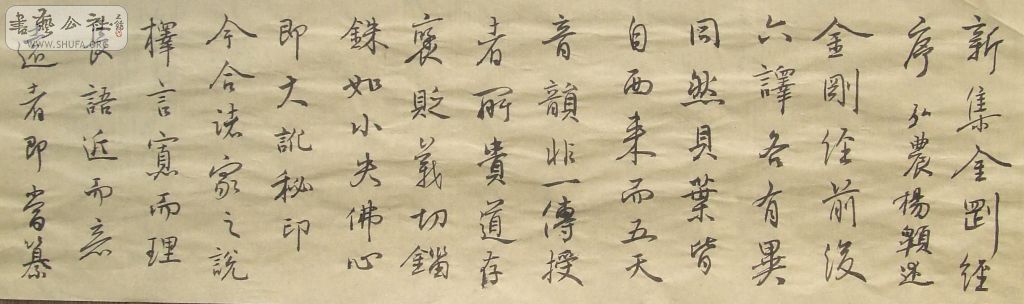 新集金剛經
序 弘農楊顯述
金剛經前後
六譯各有異
同然貝葉皆
自西来而五天
音韻非一傳授
者所貴道存
褒貶義切錙
銖如小失佛心
即大訛秘印
今合諸家之說
擇言寡而理
長語近而意
遠者即當纂
書藝公社
WWW.SHUFA.ORG